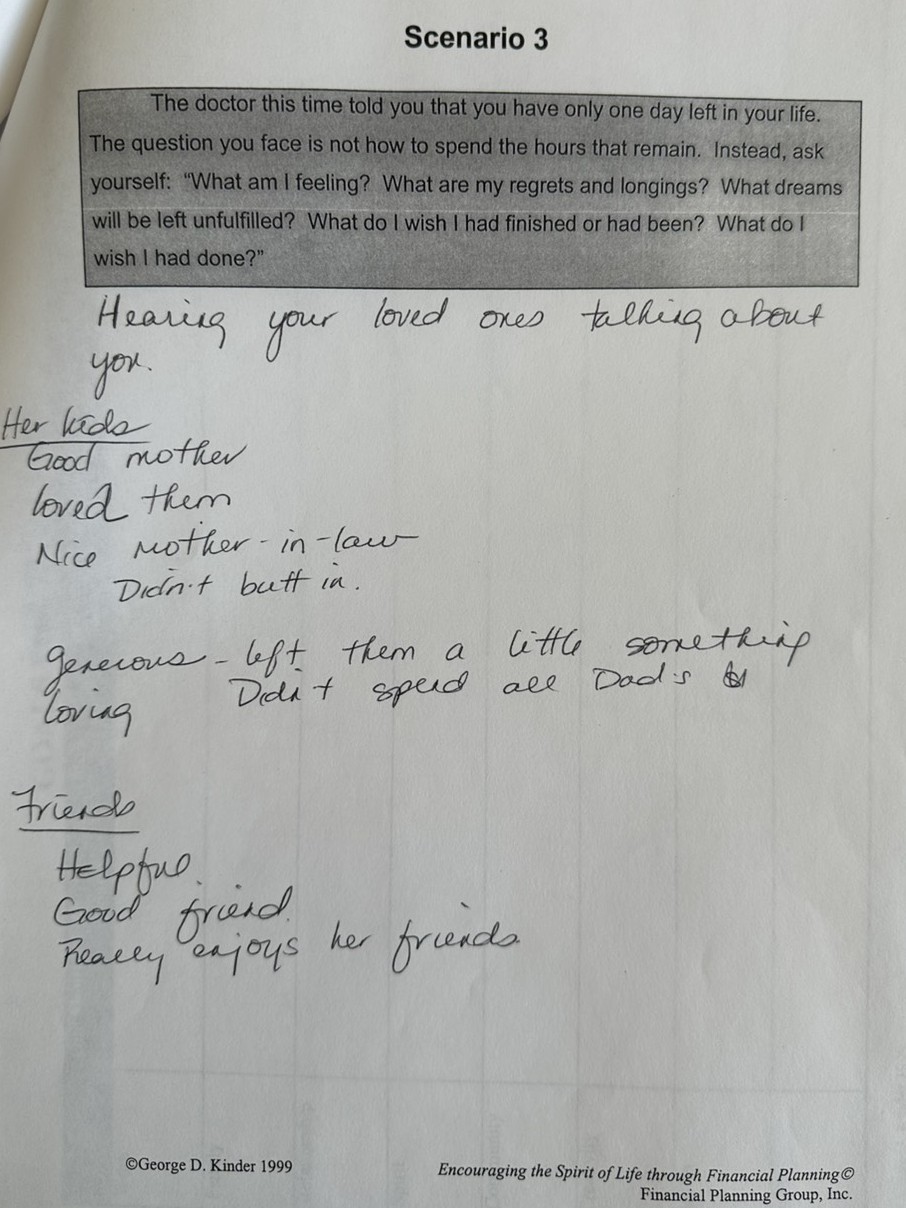 Scenario 3
The doctor this time told you that you have only one day left in your life.
The question you face is not how to spend the hours that remain. Instead, ask
yourself: "What am I feeling? What are my regrets and longings? What dreams
will be left unfulfilled? What do I wish I had finished or had been? What do I
wish I had done?"
Hearing your loved ones talking about
you.
Her kids
Good mother
loved them
Nice mother-in-law
Didn't butt in.
generous - left them a little something
loving Didn't spend all Dad's $
Friends
Helpful.
Good friend.
Really enjoys her friends
©George D. Kinder 1999
Encouraging the Spirit of Life through Financial Planning©
Financial Planning Group, Inc.